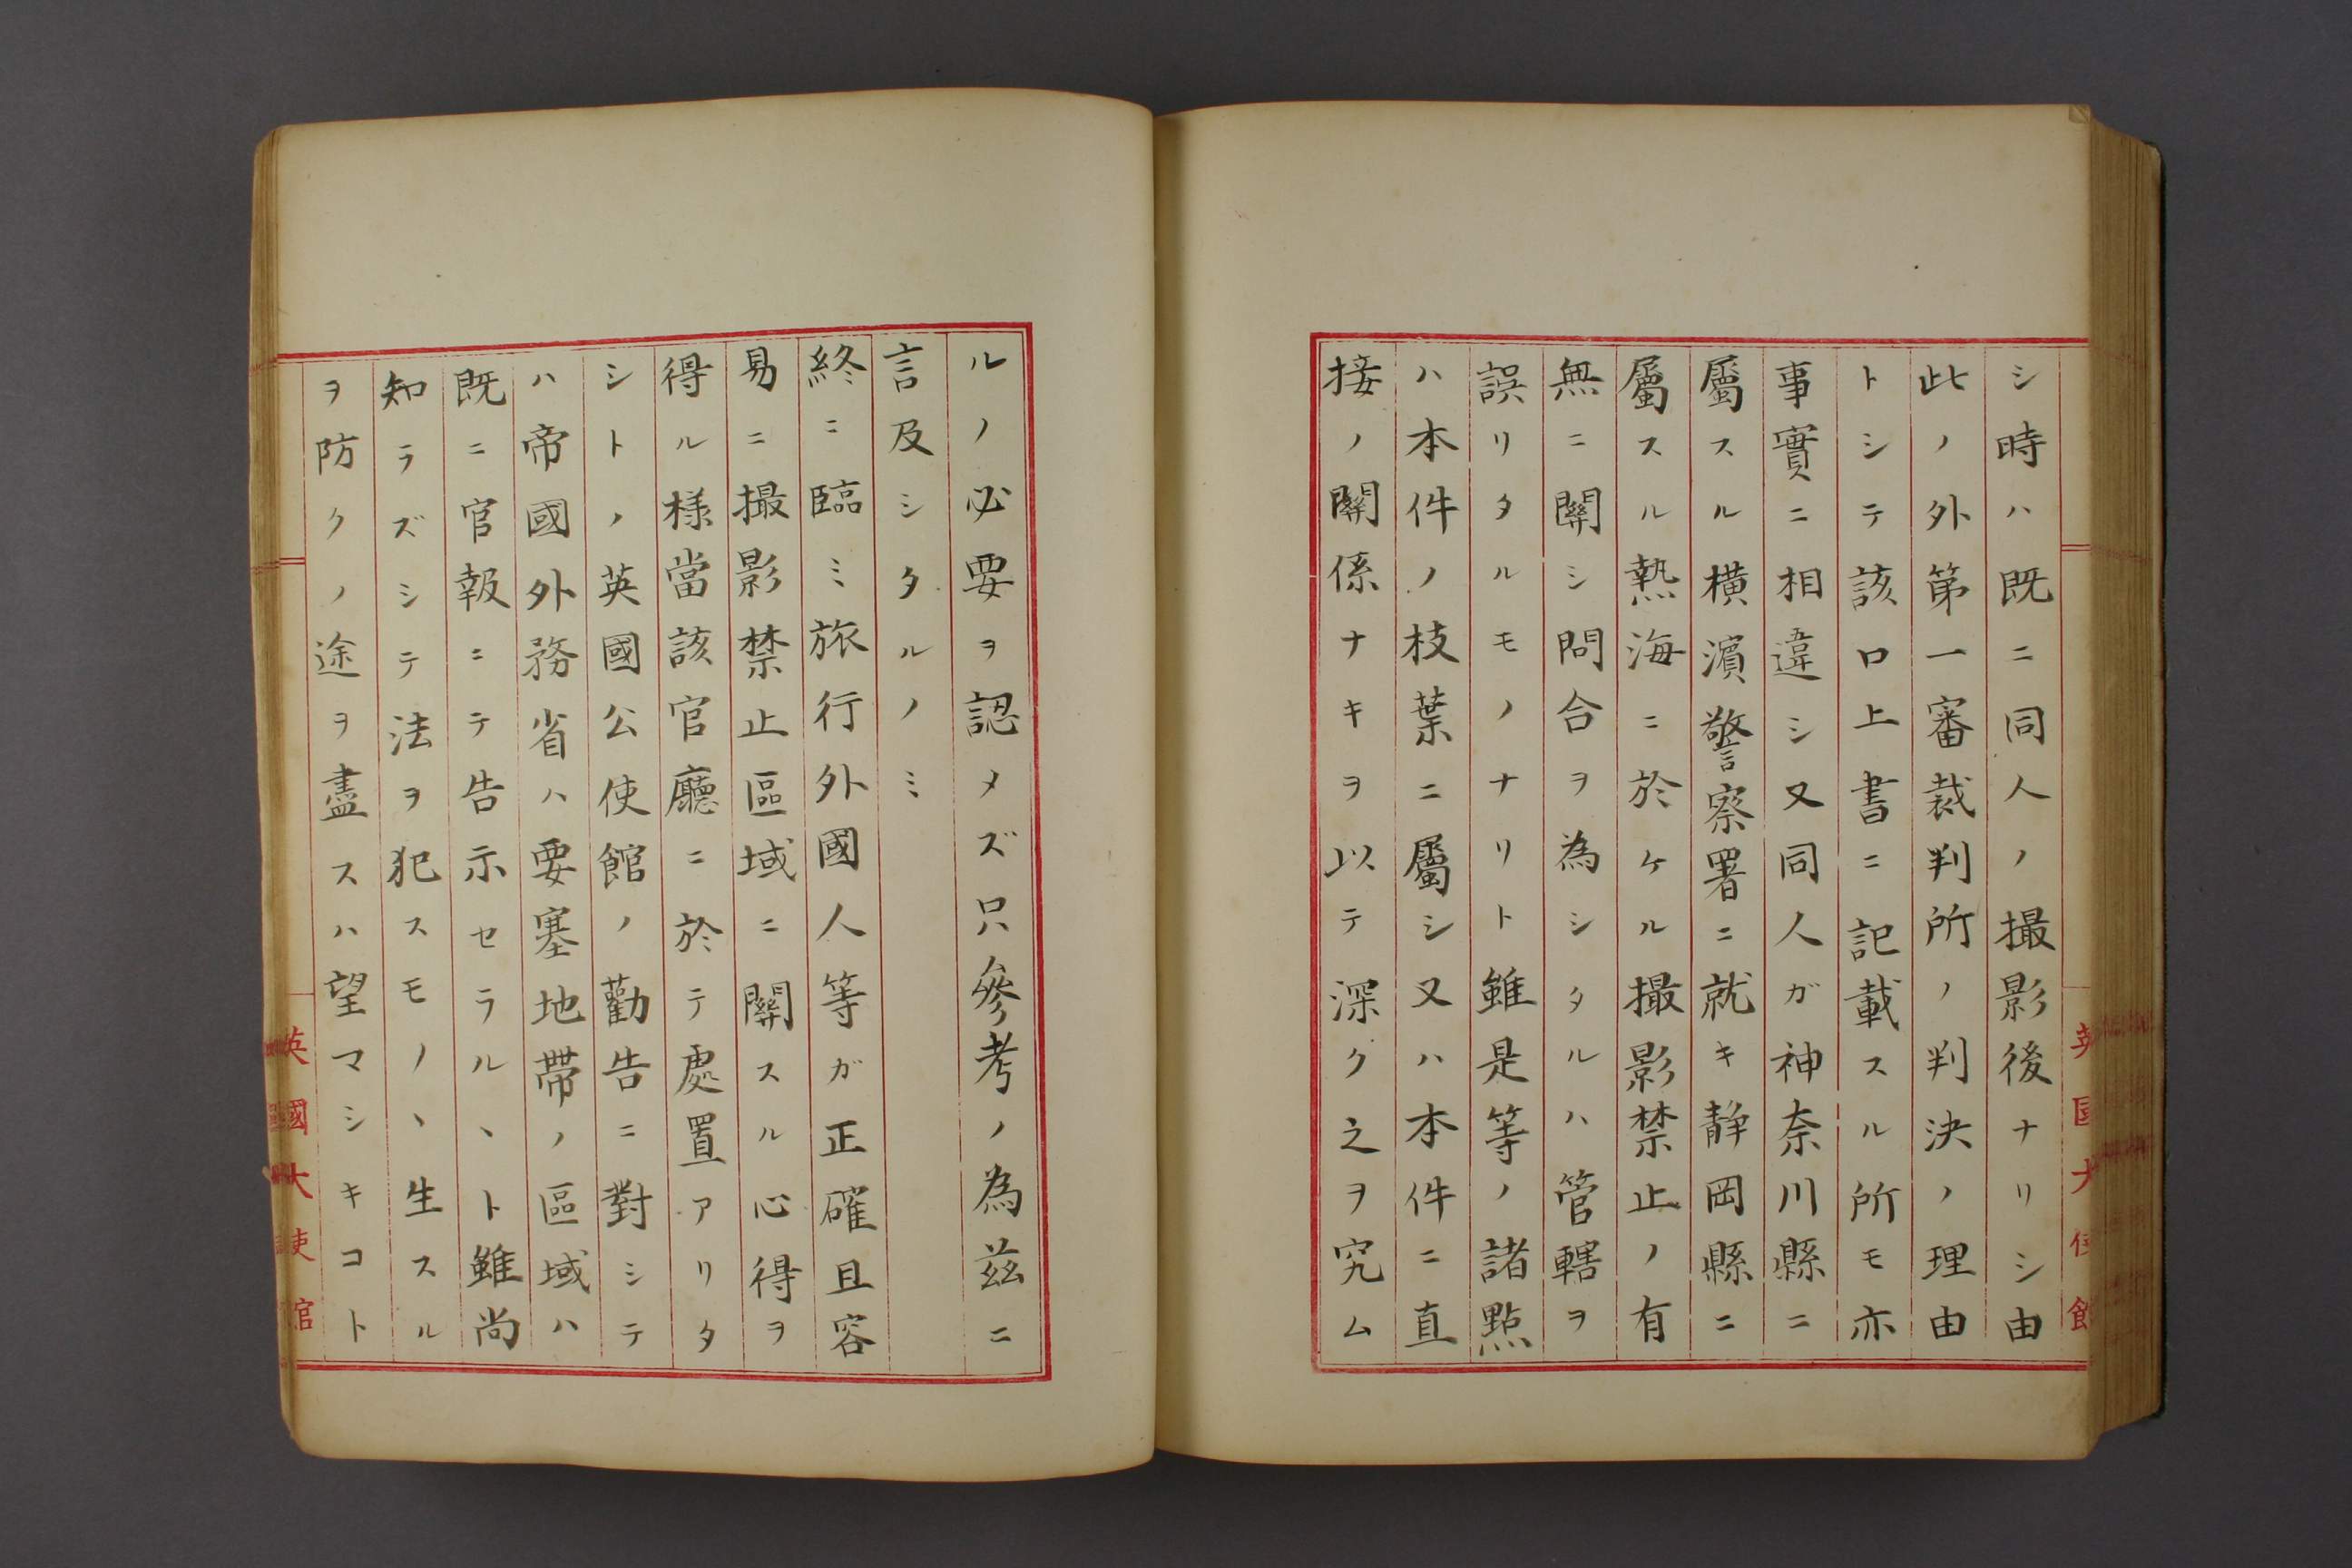 シ時ハ既ニ同人ノ撮影後ナリシ由
此ノ外第一審裁判所ノ判決ノ理由
トシテ該口上書ニ記載スル所モ亦
事實ニ相違シ又同人ガ神奈川縣ニ
屬スル横濱警察署ニ就キ静岡縣ニ
屬スル熱海ニ於ケル撮影禁止ノ有
無ニ關シ問合ヲ為シタルハ管轄ヲ
誤リタルモノナリト雖是等ノ諸點
ハ本件ノ枝葉ニ屬シ又ハ本件ニ直
接ノ關係ナキヲ以テ深ク之ヲ究ム
ルノ必要ヲ認メズ只參考ノ為茲ニ
言及シタルノミ
終ニ臨ミ旅行外國人等ガ正確且容
易ニ撮影禁止區域ニ關スル心得ヲ
得ル様當該官廳ニ於テ處置アリタ
シトノ英國公使館ノ勸告ニ對シテ
ハ帝國外務省ハ要塞地帶ノ區域ハ
既ニ官報ニテ告示セラルヽト雖尚
知ラズシテ法ヲ犯スモノヽ生スル
ヲ防クノ途ヲ盡スハ望マシキコト
英國大使館